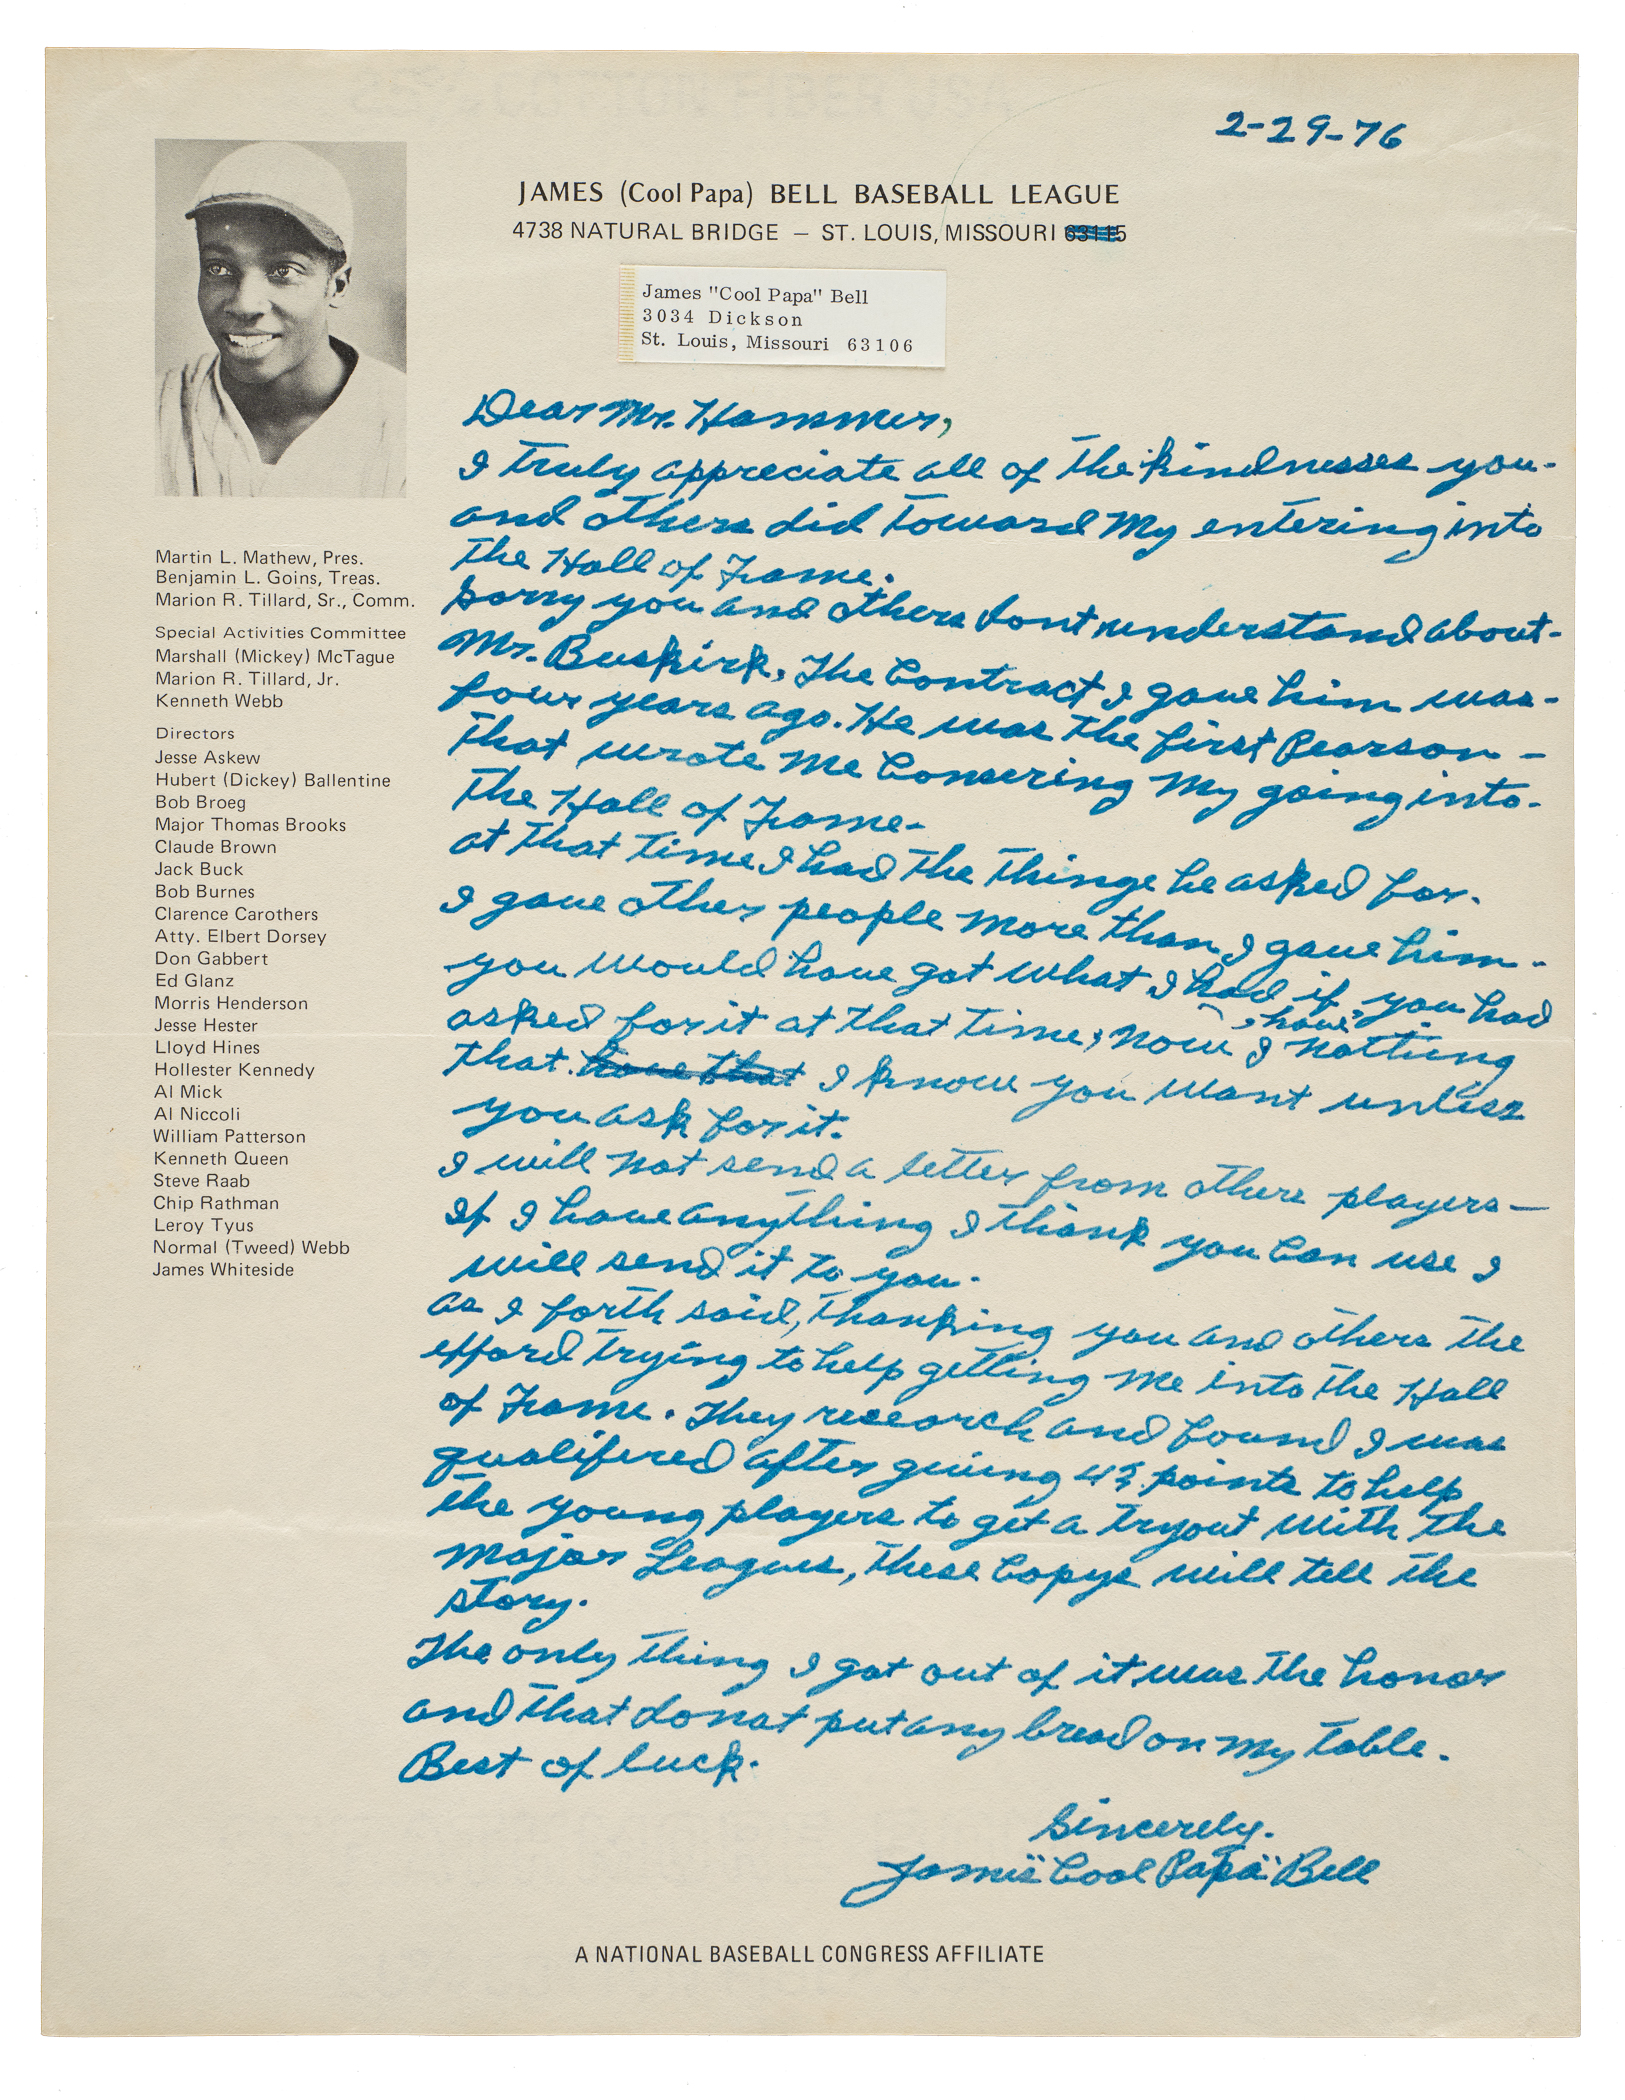 2-29-76
JAMES (Cool Papa) BELL BASEBALL LEAGUE
4738 NATURAL BRIDGE — ST. LOUIS, MISSOURI 63115
James "Cool Papa" Bell
3034 Dickson
St. Louis, Missouri 63106
Martin L. Mathew, Pres.
Benjamin L. Goins, Treas.
Marion R. Tillard, Sr., Comm.
Special Activities Committee
Marshall (Mickey) McTague
Marion R. Tillard, Jr.
Kenneth Webb
Directors
Jesse Askew
Hubert (Dickey) Ballentine
Bob Broeg
Major Thomas Brooks
Claude Brown
Jack Buck
Bob Burnes
Clarence Carothers
Atty. Elbert Dorsey
Don Gabbert
Ed Glanz
Morris Henderson
Jesse Hester
Lloyd Hines
Hollester Kennedy
Al Mick
Al Niccoli
William Patterson
Kenneth Queen
Steve Raab
Chip Rathman
Leroy Tyus
Normal (Tweed) Webb
James Whiteside
Dear Mr. Hammer,
I truly appreciate all of the kindnesses you-
and others did toward My entering into
the Hall of Fame.
Sorry you and others dont understand about-
Mr. Buskirk. The Contract I gave him was-
four years ago. He was the first Pearson -
that wrote Me Consering My going into-
the Hall of Fame-
at that time I had the things he asked for.
I gave other people More than I gave him-
you would have got what I had if you had
asked for it at that time, now I have nothing
that have that I know you want unless
you ask for it.
I will not send a letter from others players-
If I have anything I think you Can use I
will send it to you.
as I forth said, thanking you and others the
efford trying to help getting Me into the Hall
of Fame. They research and found I was
qualifired after giving 43 points to help
the young players to get a tryout with the
Major Leagues, these Copys will tell the
story.
The only thing I got out of it was the honor
and that do not put any bread on My table.
Best of luck.
Sincerely.
James "Cool Papa" Bell
A NATIONAL BASEBALL CONGRESS AFFILIATE